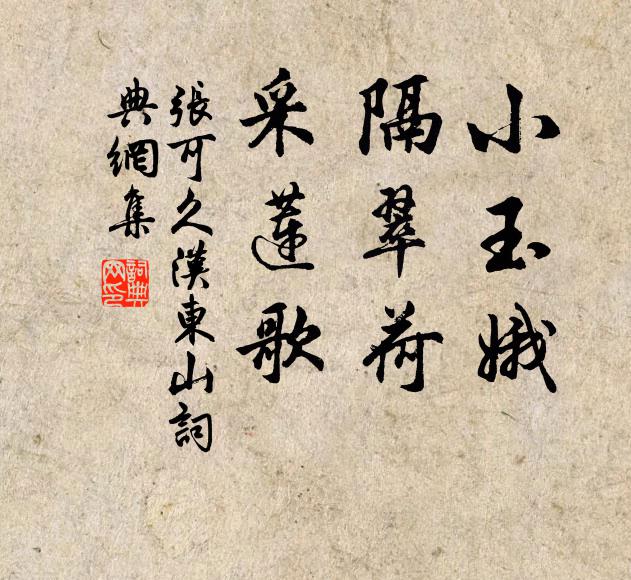 小玉娥
隔翠荷
采蓮歌
張可久漢東山詞
典網集
詞典
网印